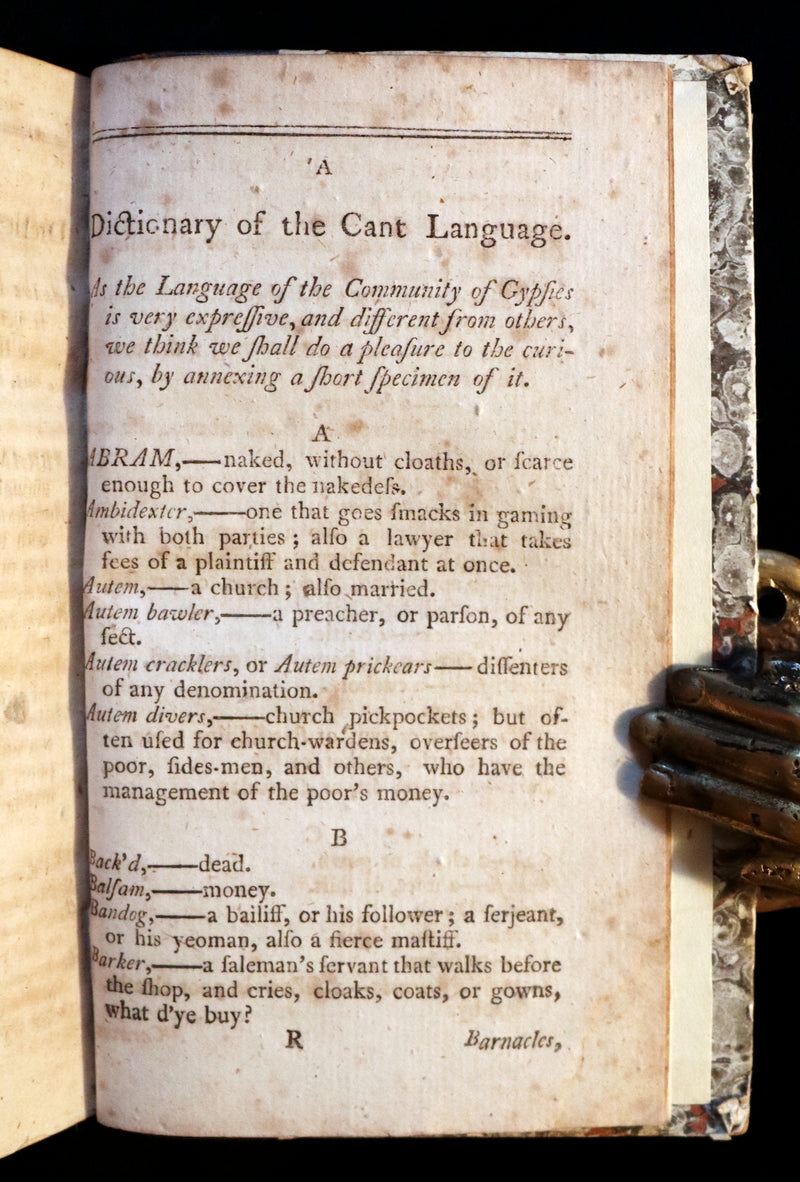 A
Dictionary of the Cant Language.
As the Language of the Community of Gypſies
is very expreſſive, and different from others,
we think we ſhall do a pleaſure to the curi-
ous, by annexing a ſhort ſpecimen of it.
A
ABRAM,——naked, without cloaths, or ſcarce
enough to cover the nakedeſs.
Ambidexter,——one that goes ſmacks in gaming
with both parties ; alſo a lawyer that takes
fees of a plaintiff and defendant at once.
Autem,——a church ; alſo married.
Autem bawler,——a preacher, or parſon, of any
ſect.
Autem cracklers, or Autem prickears——diſſenters
of any denomination.
Autem divers,——church pickpockets ; but of-
ten uſed for church-wardens, overſeers of the
poor, ſides-men, and others, who have the
management of the poor's money.
B
Back'd,——dead.
Balſam,——money.
Bandog,——a bailiff, or his follower ; a ſerjeant,
or his yeoman, alſo a fierce maſtiff.
Barker,——a ſaleman's ſervant that walks before
the ſhop, and cries, cloaks, coats, or gowns,
what d'ye buy?
R Barnacles,